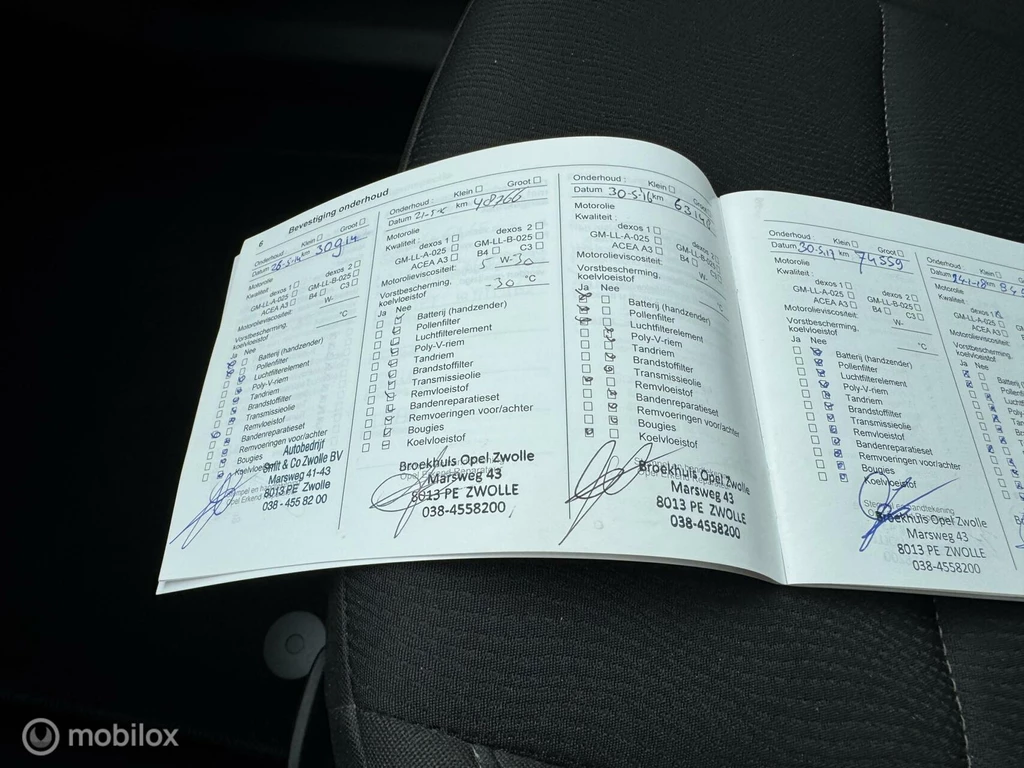 6 Bevestiging onderhoud
Onderhoud : Klein Groot
Datum 28-5-14 km 30914
Motorolie
Kwaliteit : dexos 1 dexos 2
GM-LL-A-025 GM-LL-B-025
ACEA A3 B4 C3
Motorolieviscositeit: W-
Vorstbescherming, °C
koelvloeistof
Ja Nee
Batterij (handzender)
Pollenfilter
Luchtfilterelement
Poly-V-riem
Tandriem
Brandstoffilter
Transmissieolie
Remvloeistof
Bandenreparatieset
Remvoeringen voor/achter
Bougies
Koelvloeistof
Autobedrijf
Smit & Co Zwolle BV
Marsweg 41-43
8013 PE ZWOLLE
038 - 455 82 00
Onderhoud : Klein Groot
Datum km 48266
Motorolie
Kwaliteit : dexos 1 dexos 2
GM-LL-A-025 GM-LL-B-025
ACEA A3 B4 C3
Motorolieviscositeit: 5 W-30
Vorstbescherming, -30 °C
koelvloeistof
Ja Nee
Batterij (handzender)
Pollenfilter
Luchtfilterelement
Poly-V-riem
Tandriem
Brandstoffilter
Transmissieolie
Remvloeistof
Bandenreparatieset
Remvoeringen voor/achter
Bougies
Koelvloeistof
Broekhuis Opel Zwolle
Marsweg 43
8013 PE ZWOLLE
038-4558200
Onderhoud : Klein Groot
Datum 30-5-16 km
Motorolie
Kwaliteit : dexos 1
GM-LL-A-025 GM-LL-B-025
ACEA A3 B4
Motorolieviscositeit: W-
Vorstbescherming, °C
koelvloeistof
Ja Nee
Batterij (handzender)
Pollenfilter
Luchtfilterelement
Poly-V-riem
Tandriem
Brandstoffilter
Transmissieolie
Remvloeistof
Bandenreparatieset
Remvoeringen voor/achter
Bougies
Koelvloeistof
Broekhuis Opel Zwolle
Marsweg 43
8013 PE ZWOLLE
038-4558200
Onderhoud : Klein Groot
Datum 30-5-17 km 74559
Motorolie
Kwaliteit : dexos 1 dexos 2
GM-LL-A-025 GM-LL-B-025
ACEA A3 B4 C3
Motorolieviscositeit: W-
Vorstbescherming, °C
koelvloeistof
Ja Nee
Batterij (handzender)
Pollenfilter
Luchtfilterelement
Poly-V-riem
Tandriem
Brandstoffilter
Transmissieolie
Remvloeistof
Bandenreparatieset
Remvoeringen voor/achter
Bougies
Koelvloeistof
Broekhuis Opel Zwolle
Marsweg 43
8013 PE ZWOLLE
038-4558200
Onderhoud : Klein
Datum km
Motorolie
Kwaliteit : dexos 1
GM-LL-A-025
ACEA A3
Motorolieviscositeit:
Vorstbescherming,
koelvloeistof
Ja Nee
mobilox